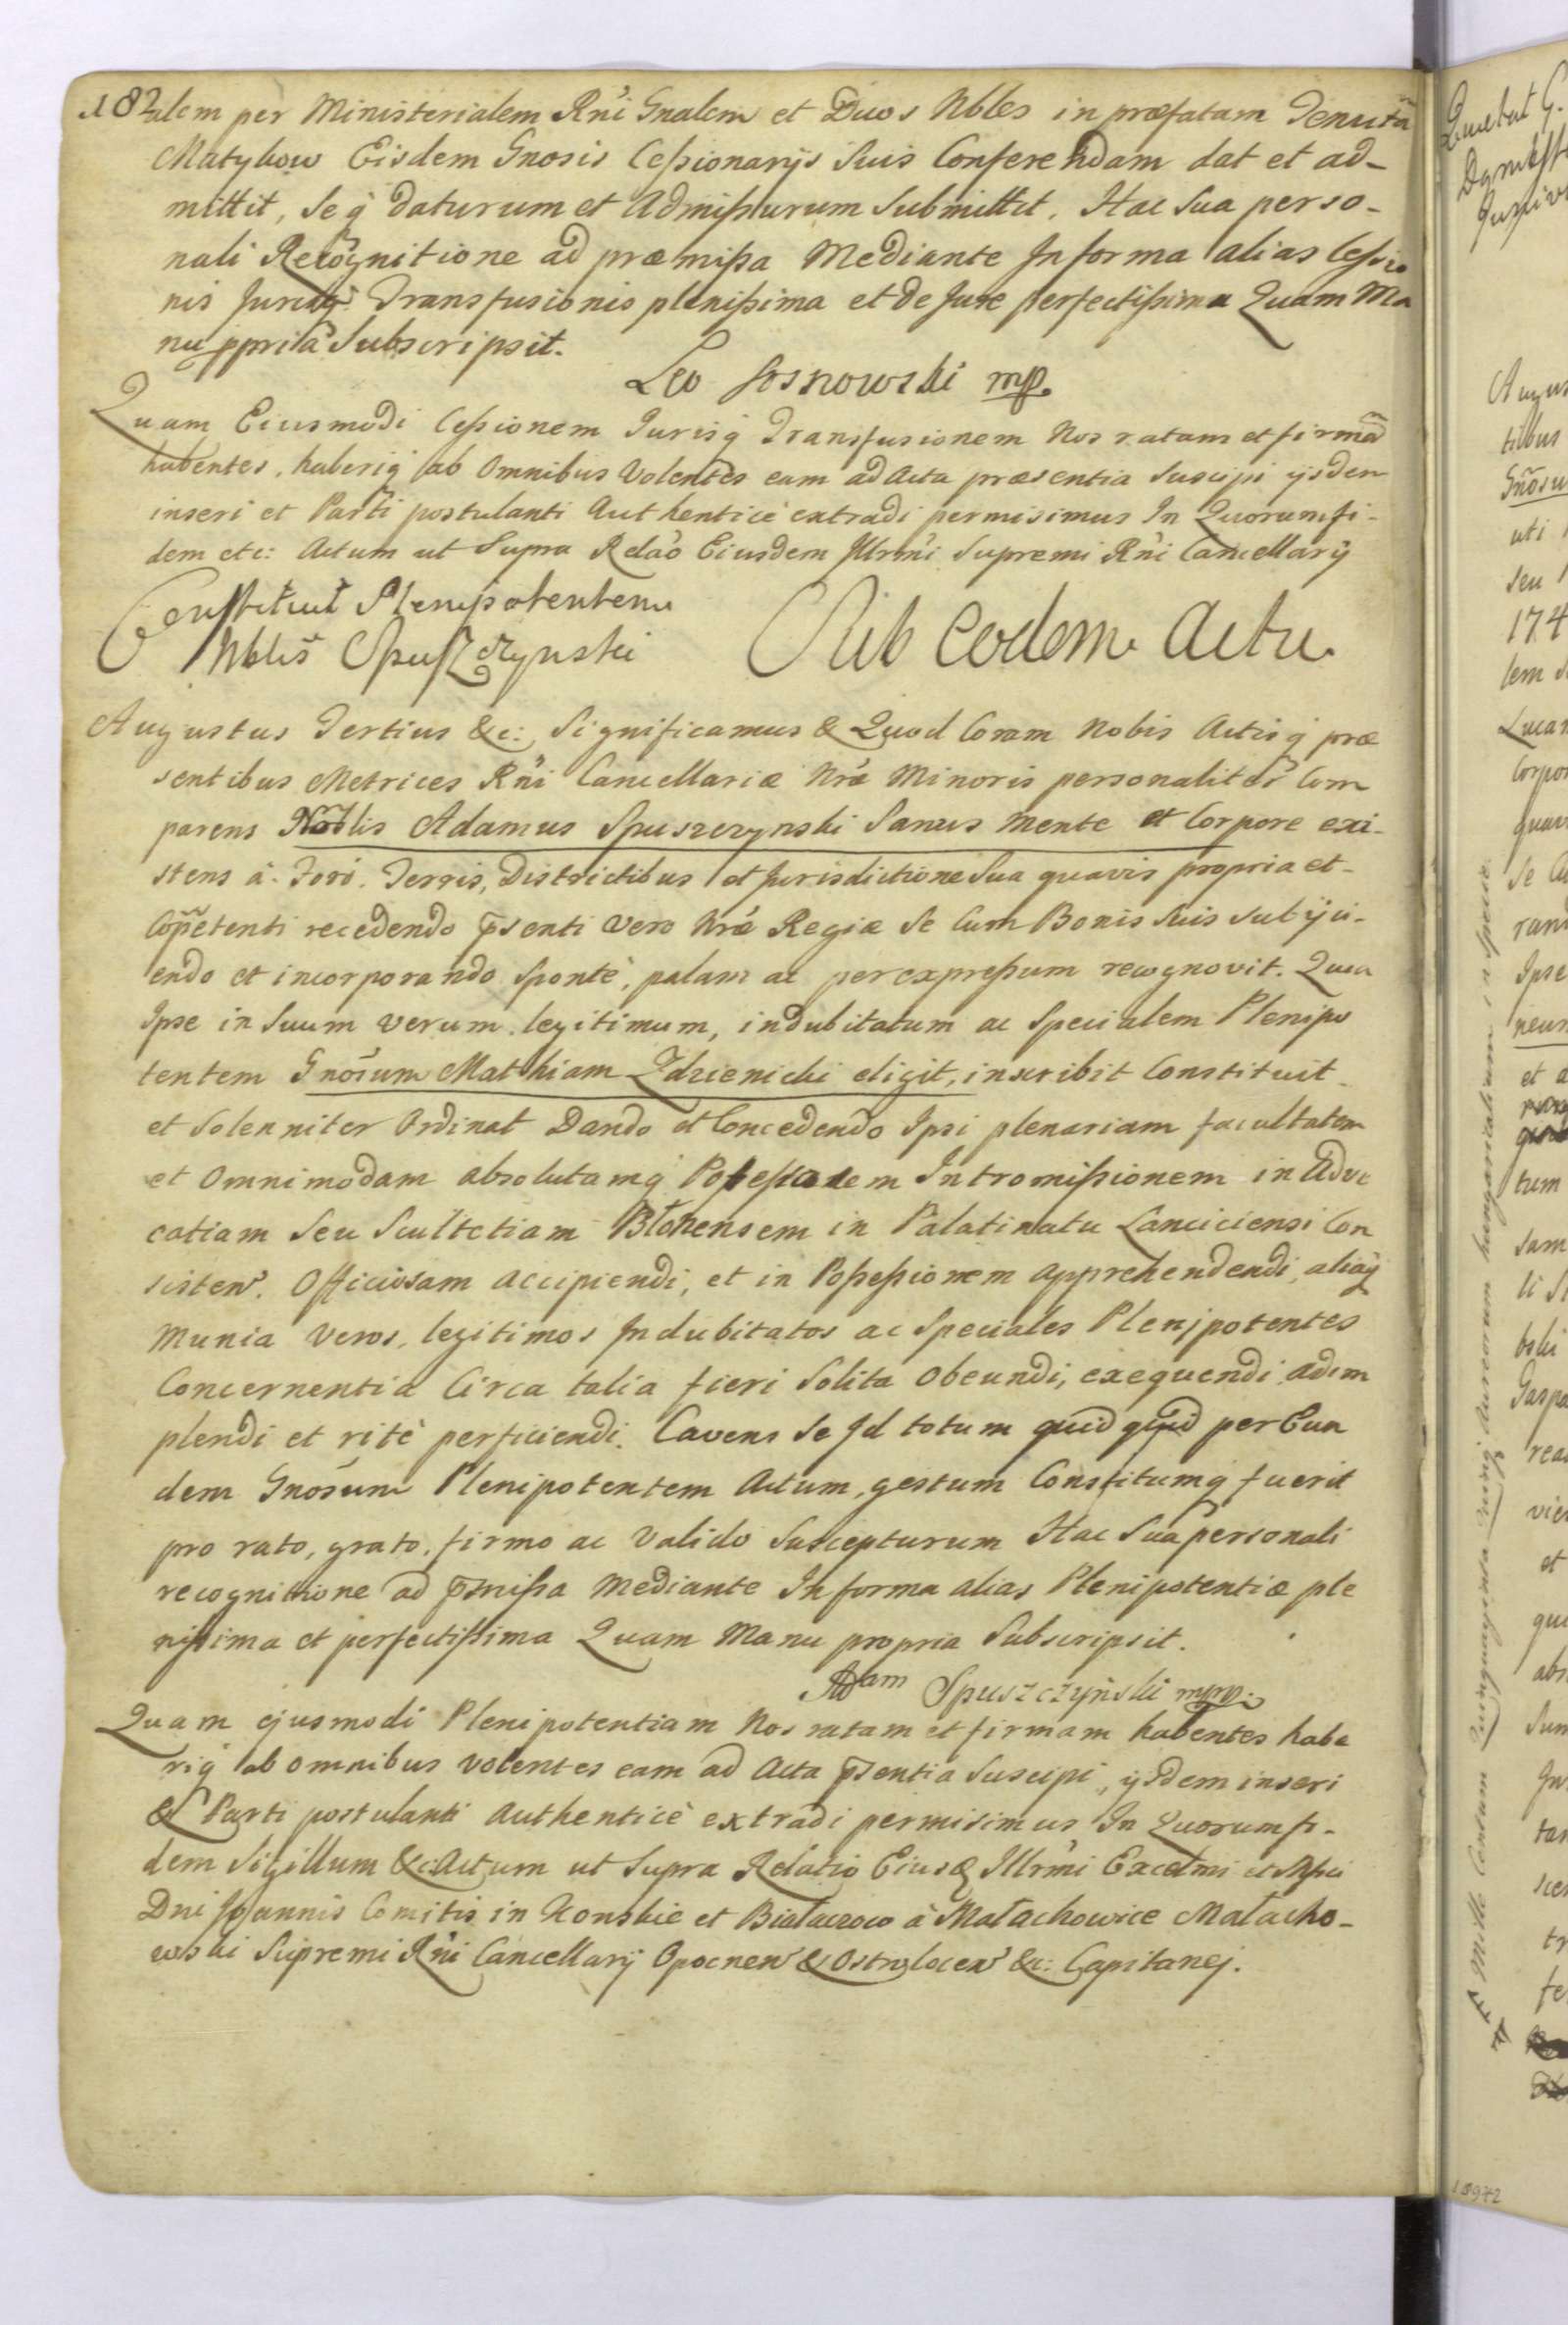 182
alem per Ministerialem Rńi Gnalem et Duos Nbles in præfatam Tenutã
Matykow Eisdem Gnosis Cessionarijs Suis Conferendam dat et ad-
mittit, Seq̃ daturum et Admissurum Submittit. Hac Sua perso-
nali Recognitione ad præmissa Mediante In forma alias Cessio
nis Jurisq̃ Transfusionis plenissima et de Jure perfectissima Quam Ma
nu ppria Subscripsit.
Leo Sosnowski mp.
Quam Eiusmodi Cessionem Jurisq̃ Transfusionem Nos ratam et firmã
habentes, haberiq̃ ab Omnibus Volentes eam ad Acta præsentia Suscipi ijsdem
inseri et Parti postulanti Authenticè extradi permisimus In Quorum fi-
dem etc: Actum ut Supra Relaõ Eiusdem Illrmi Supremi Rńi Cancellarij
Constituit Plenipotentem
Nblis Spuszczynski
Sub Eodem Actu
Augustus Tertius &c: Significamus & Quod Coram Nobis Actisq̃ præ
sentibus Metrices Rńi Cancellariæ Nræ Minoris personaliter Com
parens Noblis Adamus Spuszczynski Sanus mente et Corpore exi-
stens à Foro. Terris, Districtibus et Jurisdictione Sua quavis propria et
Cop̃etenti recedendo p̃senti vero Nræ Regiæ Se Cum Bonis Suis subijci-
endo et incorporando Spontè, palam ac per expressum recognovit. Quia
Ipse in Suum verum, legitimum, indubitatum ac Specialem Plenipo
tentem Gnosum Mathiam Zdzienicki eligit, inscribit Constituit
et Solenniter Ordinat Dando et Concedendo Ipsi plenariam facultatem
et Omnimodam absolutamq̃ Potestatem Intromissionem in Advo
catiam Seu Scultetiam Blonensem in Palatinatu Lanciciensi Con
sisten. Officiosam accipiendi, et in Possessionem apprehendendi, aliaq̃
Munia veros, legitimos Indubitatos ac Speciales Plenipotentes
Concernentia Circa talia fieri Solita obeundi, exequendi, adim
plendi et ritè perficiendi. Cavens Se Id totum quid quid per Eun
dem Gnosum Plenipotentem Actum, gestum Constitumq̃ fuerit
pro rato, grato, firmo ac Valido Suscepturum Hac Sua personali
recognitione ad p̃missa Mediante In forma alias Plenipotentiæ ple
nissima et perfectissima Quam Manu propria Subscripsit.
Adam Spuszczyński mpp:
Quam ejusmodi Plenipotentiam Nos ratam et firmam habentes habe
riq̃ ab omnibus volentes eam ad Acta p̃sentia Suscipi, ijsdem inseri
& Parti postulanti Authenticè extradi permisimus In Quorum fi-
dem Sigillum &c: Actum ut Supra Relatio Eiusd Illrmi Excelmi et
Dni Joannis Comitis in Konskie et Białaczow à Małachowice Małacho-
wski Supremi Rńi Cancellarij Opocnen & Ostrolecen &c: Capitanej.